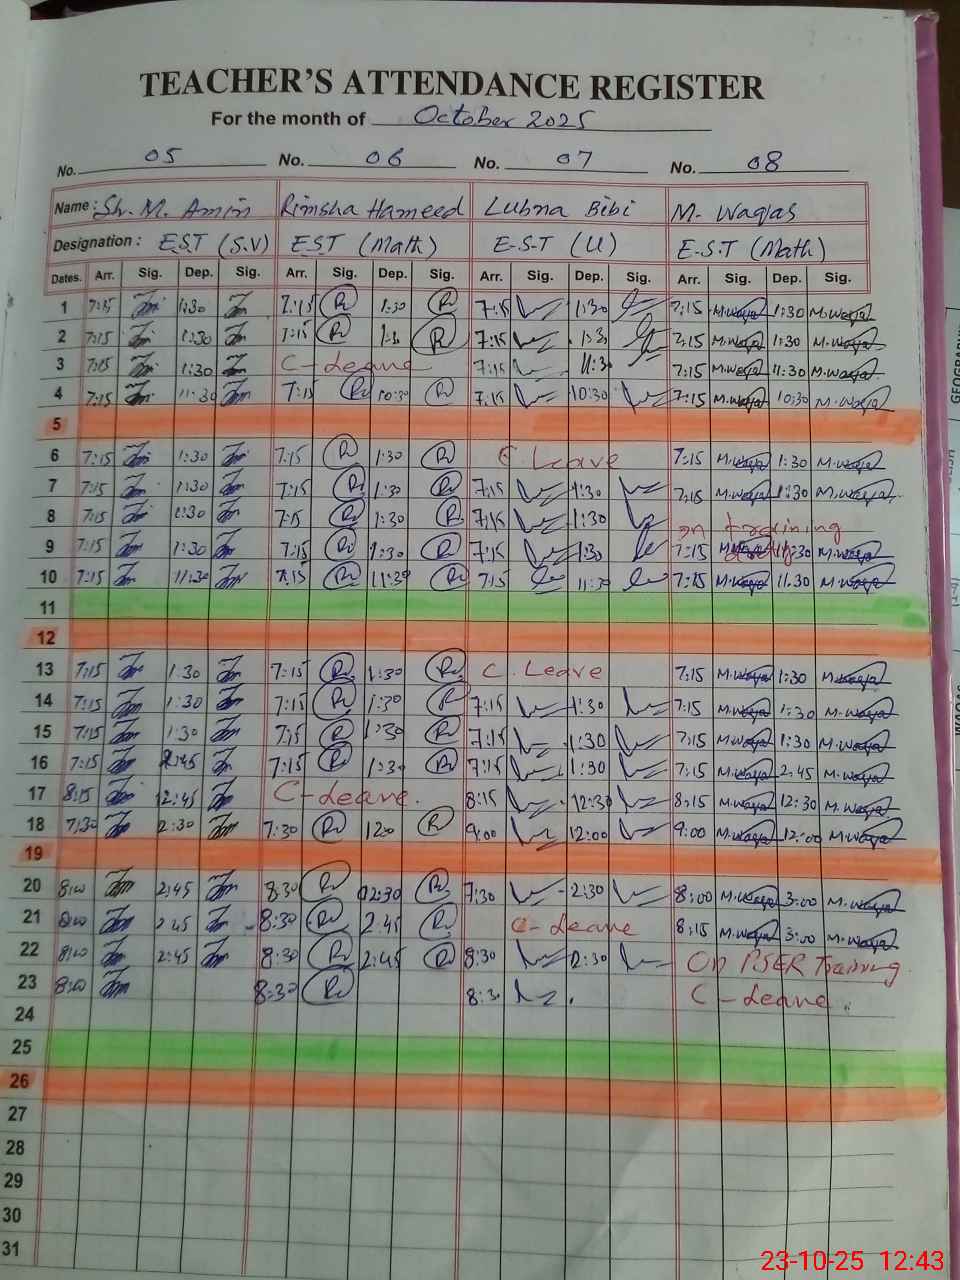 TEACHER'S ATTENDANCE REGISTER
For the month of October 2025
No. 05 No. 06 No. 07 No. 08
Name: Sh. M. Amin Rimsha Hameed Lubna Bibi M. Waqas
Designation: E.S.T (S.V) E.S.T (Math) E.S.T (U) E.S.T (Math)
Dates. Arr. Sig. Dep. Sig. Arr. Sig. Dep. Sig. Arr. Sig. Dep. Sig. Arr. Sig. Dep. Sig.
1 7:15 1:30 7:15 1:30 7:15 1:30 7:15 M.Waqas 1:30 M.Waqas
2 7:15 1:30 7:15 1:30 7:15 1:30 7:15 M.Waqas 1:30 M.Waqas
3 7:15 1:30 C-Leave 7:15 11:30 7:15 M.Waqas 11:30 M.Waqas
4 7:15 11:30 7:15 10:30 7:15 10:30 7:15 M.Waqas 10:30 M.Waqas
5
6 7:15 1:30 7:15 1:30 C. Leave 7:15 M.Waqas 1:30 M.Waqas
7 7:15 1:30 7:15 1:30 7:15 1:30 7:15 M.Waqas 1:30 M.Waqas
8 7:15 1:30 7:15 1:30 7:15 1:30 on training
9 7:15 1:30 7:15 1:30 7:15 1:30 7:15 1:30 M.Waqas
10 7:15 11:30 7:15 11:30 7:15 11:30 7:15 M.Waqas 11.30 M.Waqas
11
12
13 7:15 1:30 7:15 1:30 C. Leave 7:15 M.Waqas 1:30 M.Waqas
14 7:15 1:30 7:15 1:30 7:15 1:30 7:15 M.Waqas 1:30 M.Waqas
15 7:15 1:30 7:15 1:30 7:15 1:30 7:15 M.Waqas 1:30 M.Waqas
16 7:15 2:45 7:15 1:30 7:15 1:30 7:15 M.Waqas 2:45 M.Waqas
17 8:15 12:45 C-Leave. 8:15 12:30 8:15 M.Waqas 12:30 M.Waqas
18 7:30 2:30 7:30 9:00 12:00 9:00 M.Waqas 12:00 M.Waqas
19
20 8:00 2:45 8:30 7:30 2:30 8:00 M.Waqas 3:00 M.Waqas
21 8:00 2:45 8:30 2:45 C-Leave 8:15 M.Waqas 3:00 M.Waqas
22 8:00 2:45 8:30 2:45 8:30 On PSER Training.
23 8:00 8:30 8:30 C-Leave.
24
25
26
27
28
29
30
31
GEOGRAPHY
23-10-25 12:43